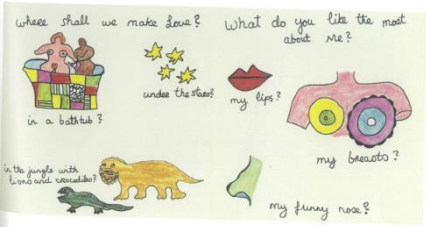 where shall we make love?
in a bathtub?
under the stars?
in the jungle with
lions and crocodiles?
What do you like the most
about me?
my lips?
my breasts?
my funny nose?